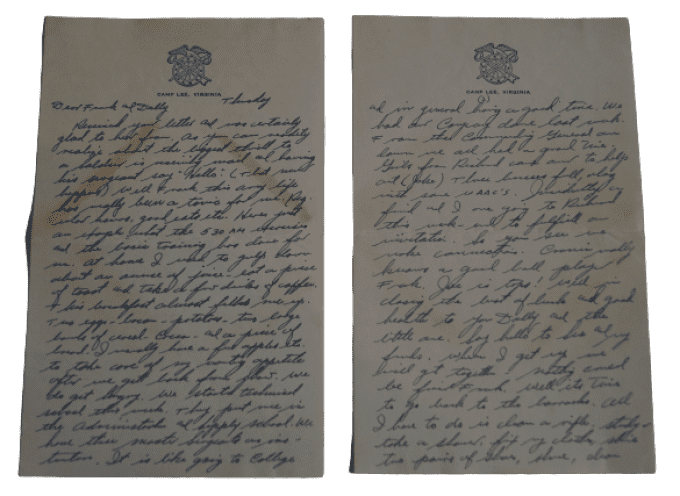 CAMP LEE, VIRGINIA
Dear Frank and Dolly Thursday
Received your letter and was certainly
glad to hear from you. As you can readily
realize about the biggest thrill to
a soldier is receiving mail and having
his sergeant say "Hello". (That has not
happened) Well Frank this army life
has really been a tonic for me. Reg-
ular hours, good eats etc. Here's just
an example what the 5:30 AM exercises
and the basic training has done for
me. At home I used to gulp down
about an ounce of juice - eat a piece
of toast and take a few drinks of coffee.
& his breakfast almost filled me up.
Two eggs - bacon - potatoes - two large
bowls of cereal - Cocoa - and a piece of
bread. I usually have a few apples etc.
to take care of my appetite
after we get back from. We
do get hungry. We started technical
school this week. They put me in
the Administration and supply school. We
have three Sergeants as ins-
tructors. It is like going to College
CAMP LEE, VIRGINIA
and in general having a good time. We
had our Company dance last week.
& ran the Commanding General
down we all had a good time.
Girls from Richmond came over to help
out (Joke) Three busses full, along
with some WAAC's. my
friend and I are going to Richmond
this week-end to fulfill an
invitation. So you see we
make connections. Connie really
knows a good ball player
Frank. Joe is tops! Well in
closing the best of luck and good
health to you Dolly and the
little one. Say hello to and my
friends. When I get my we
will get together. Nothing could
be finer Frank. Well its time
to go back to the barracks. All
I have to do is clean a rifle, study
take a shower, fix my clothes, shine
two pairs of shoes, shave, clean